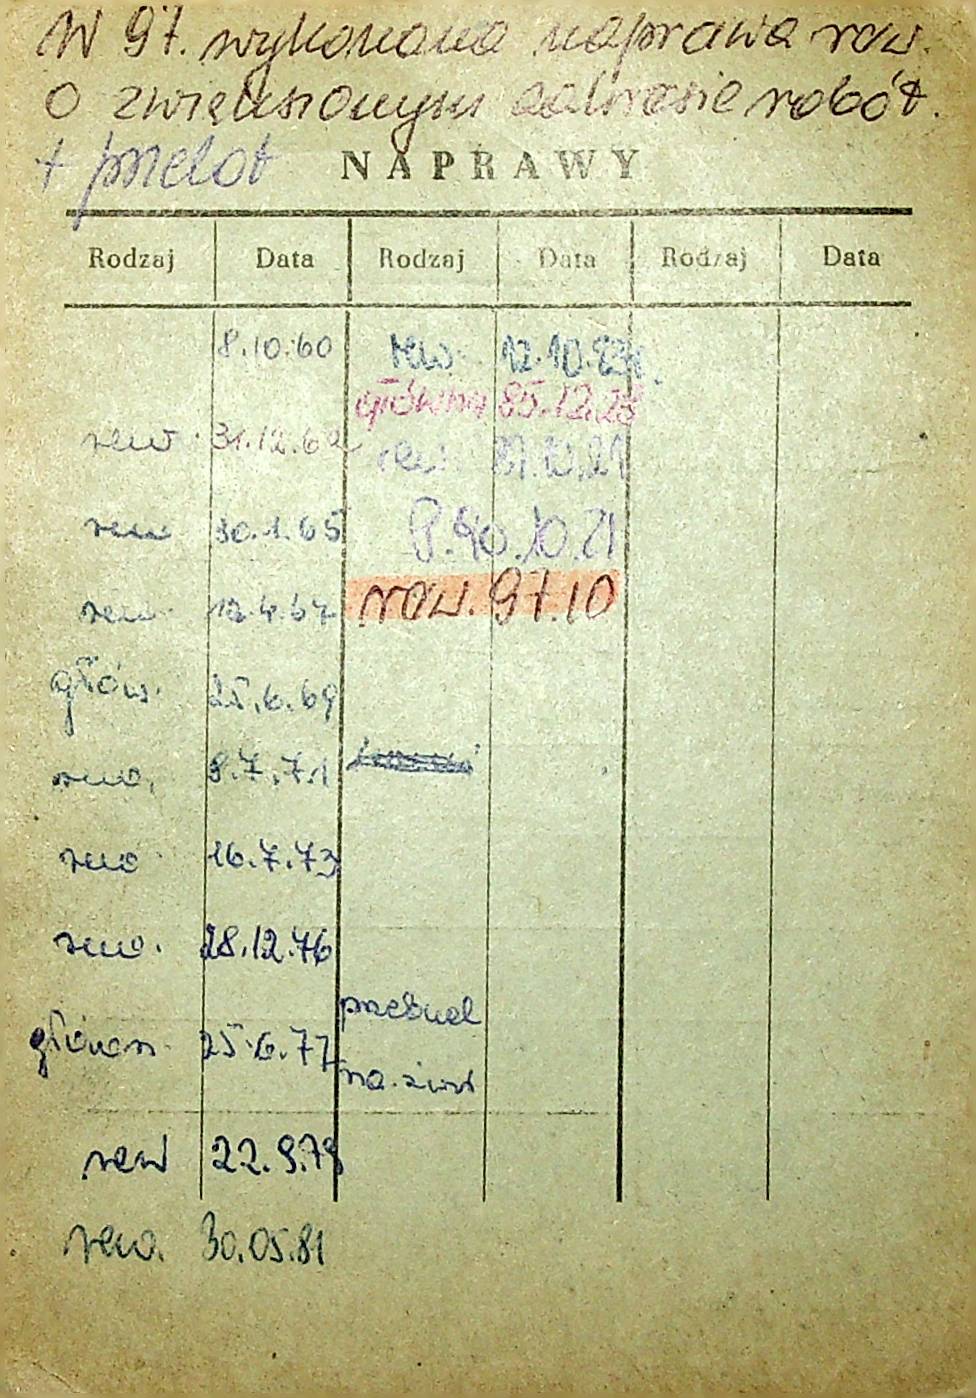 W 97. wykonana naprawa rew.
o zwiększonym zakresie robót.
+ przelot
NAPRAWY
Rodzaj Data Rodzaj Data Rodzaj Data
8.10.60 rew. 12.10.83r.
główna 85.12.28
rew. 31.12.62
rew 30.1.65 P. 90.10.21
rew. 12.4.67 rew. 97.10
głów. 25.6.69
rew. 8.7.71
rew 16.7.73
rew. 28.12.76
przebud
główn. 25.6.77
na
rew 22.9.79
rew. 30.05.81